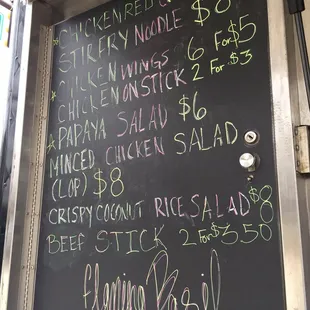 CHICKEN RED
STIRFRY NOODLE $8
CHICKEN WINGS 6 FOR $5
CHICKEN ON STICK 2 FOR $3
PAPAYA SALAD $6
MINCED CHICKEN SALAD
(LOP) $8
CRISPY COCONUT RICE SALAD $8
BEEF STICK 2 FOR $3.50
flaming Basil